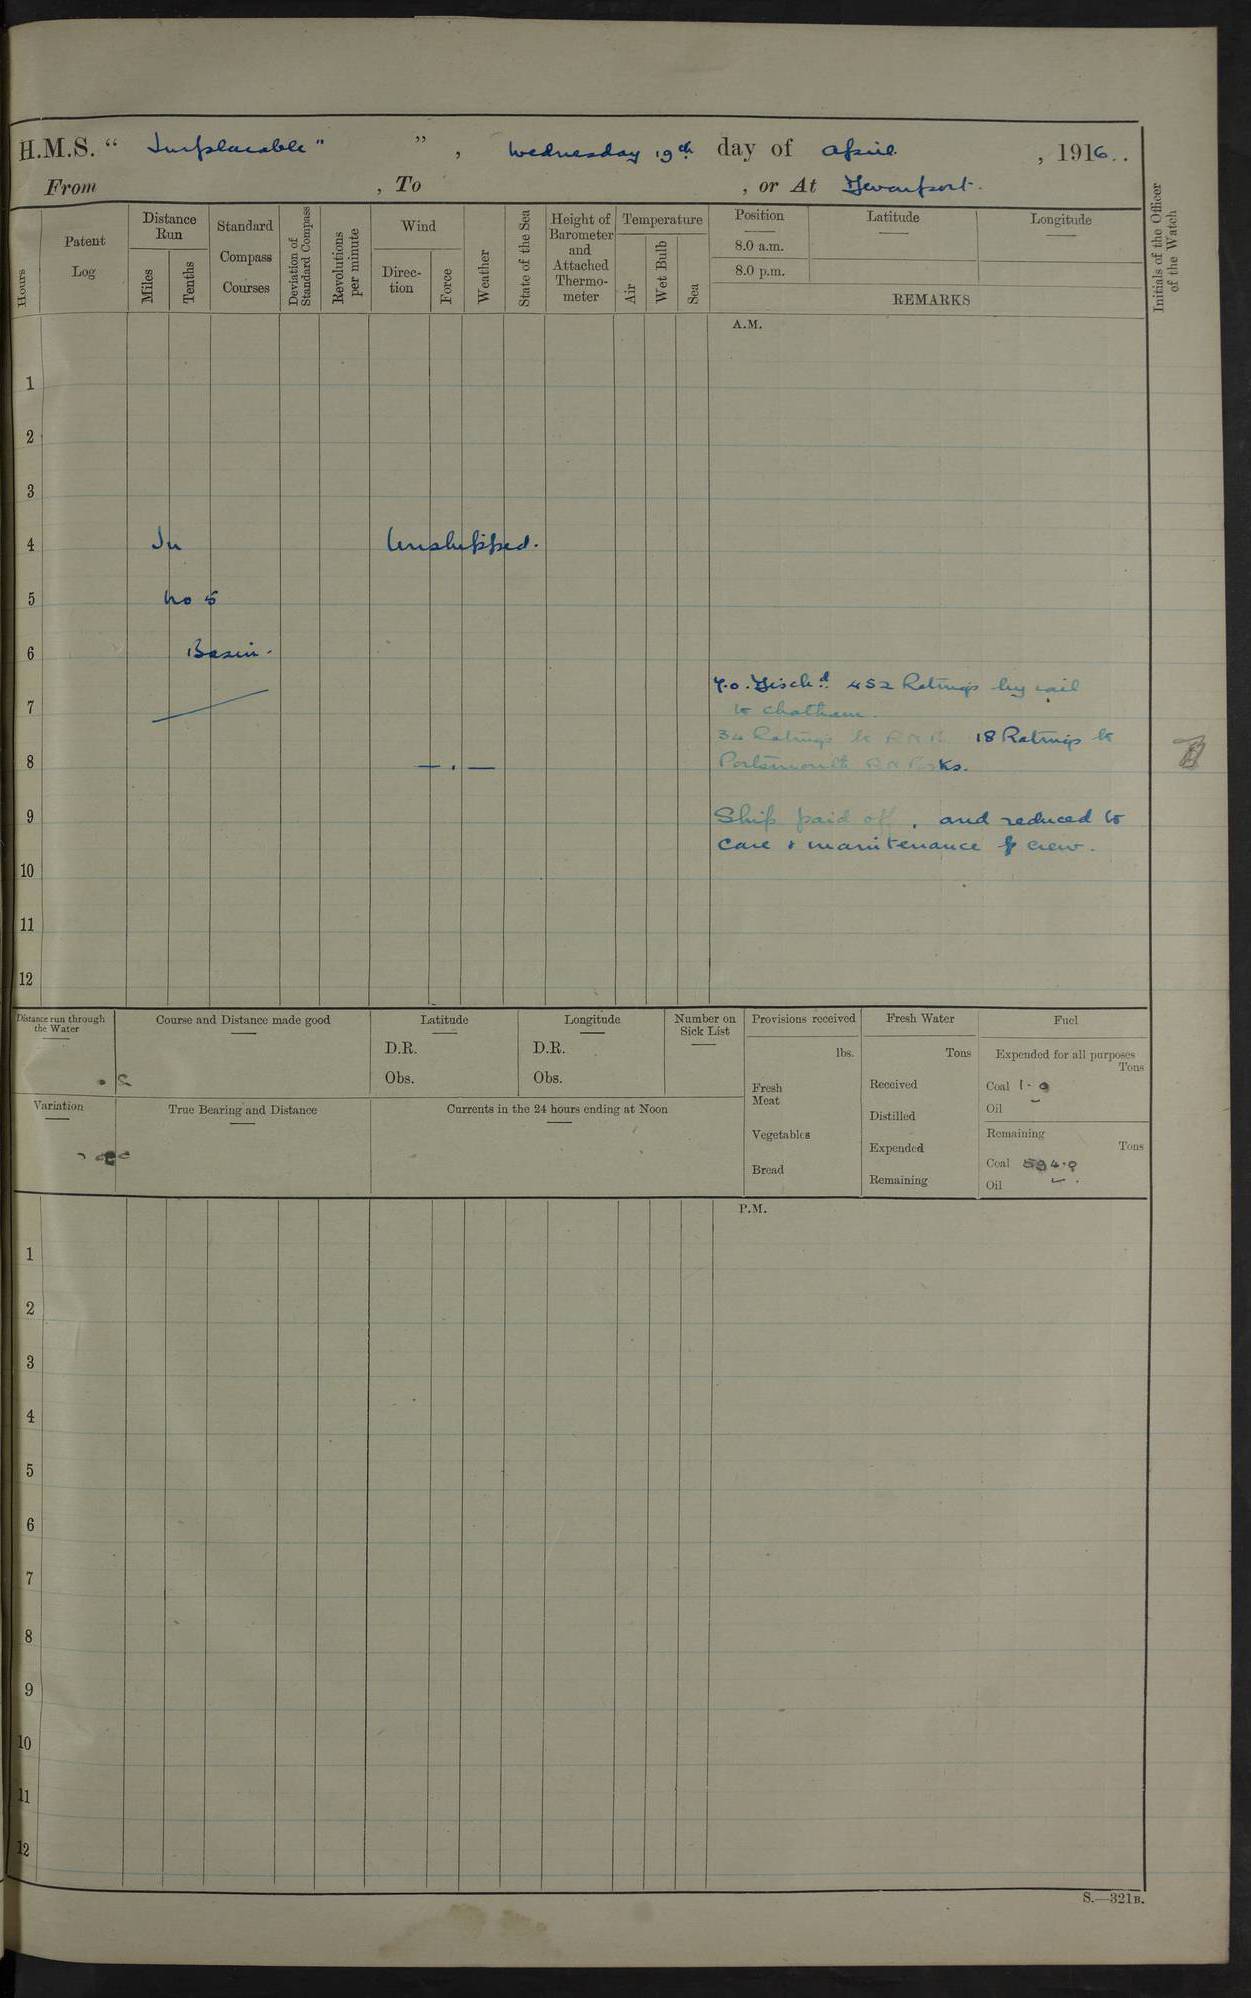 H.M.S. “ Implacable " ” , Wednesday 19th day of April , 1916..
From , To , or At Devonport.
Hours
Patent Log
Distance Run
Miles
Tenths
Standard Compass Courses
Deviation of Standard Compass
Revolutions per minute
Wind
Direc-tion
Force
Weather
State of the Sea
Height of Barometer and Attached Thermo-meter
Temperature
Air
Wet Bulb
Sea
Position
Latitude
Longitude
8.0 a.m.
8.0 p.m.
REMARKS
Initials of the Officer of the Watch
A.M.
1
2
3
4 In Unshipped.
5 No 5
6 Basin.
7.0. Disch.d 452 Ratings by rail
7 to Chatham.
34 Ratings to R.N.B. 18 Ratings to
8 — . — Portsmouth R N Barks.
9 Ship paid off, and reduced to
care & maintenance of crew.
10
11
12
Distance run through the Water
Course and Distance made good
Latitude
D.R.
Obs.
Longitude
D.R.
Obs.
Number on Sick List
Provisions received
lbs.
Fresh Meat
Vegetables
Bread
Fresh Water
Tons
Received
Distilled
Expended
Remaining
Fuel
Expended for all purposes
Tons
Coal 1·0
Oil –
Remaining
Tons
Coal 594·0
Oil –
Variation
True Bearing and Distance
Currents in the 24 hours ending at Noon
P.M.
1
2
3
4
5
6
7
8
9
10
11
12
S.—321B.